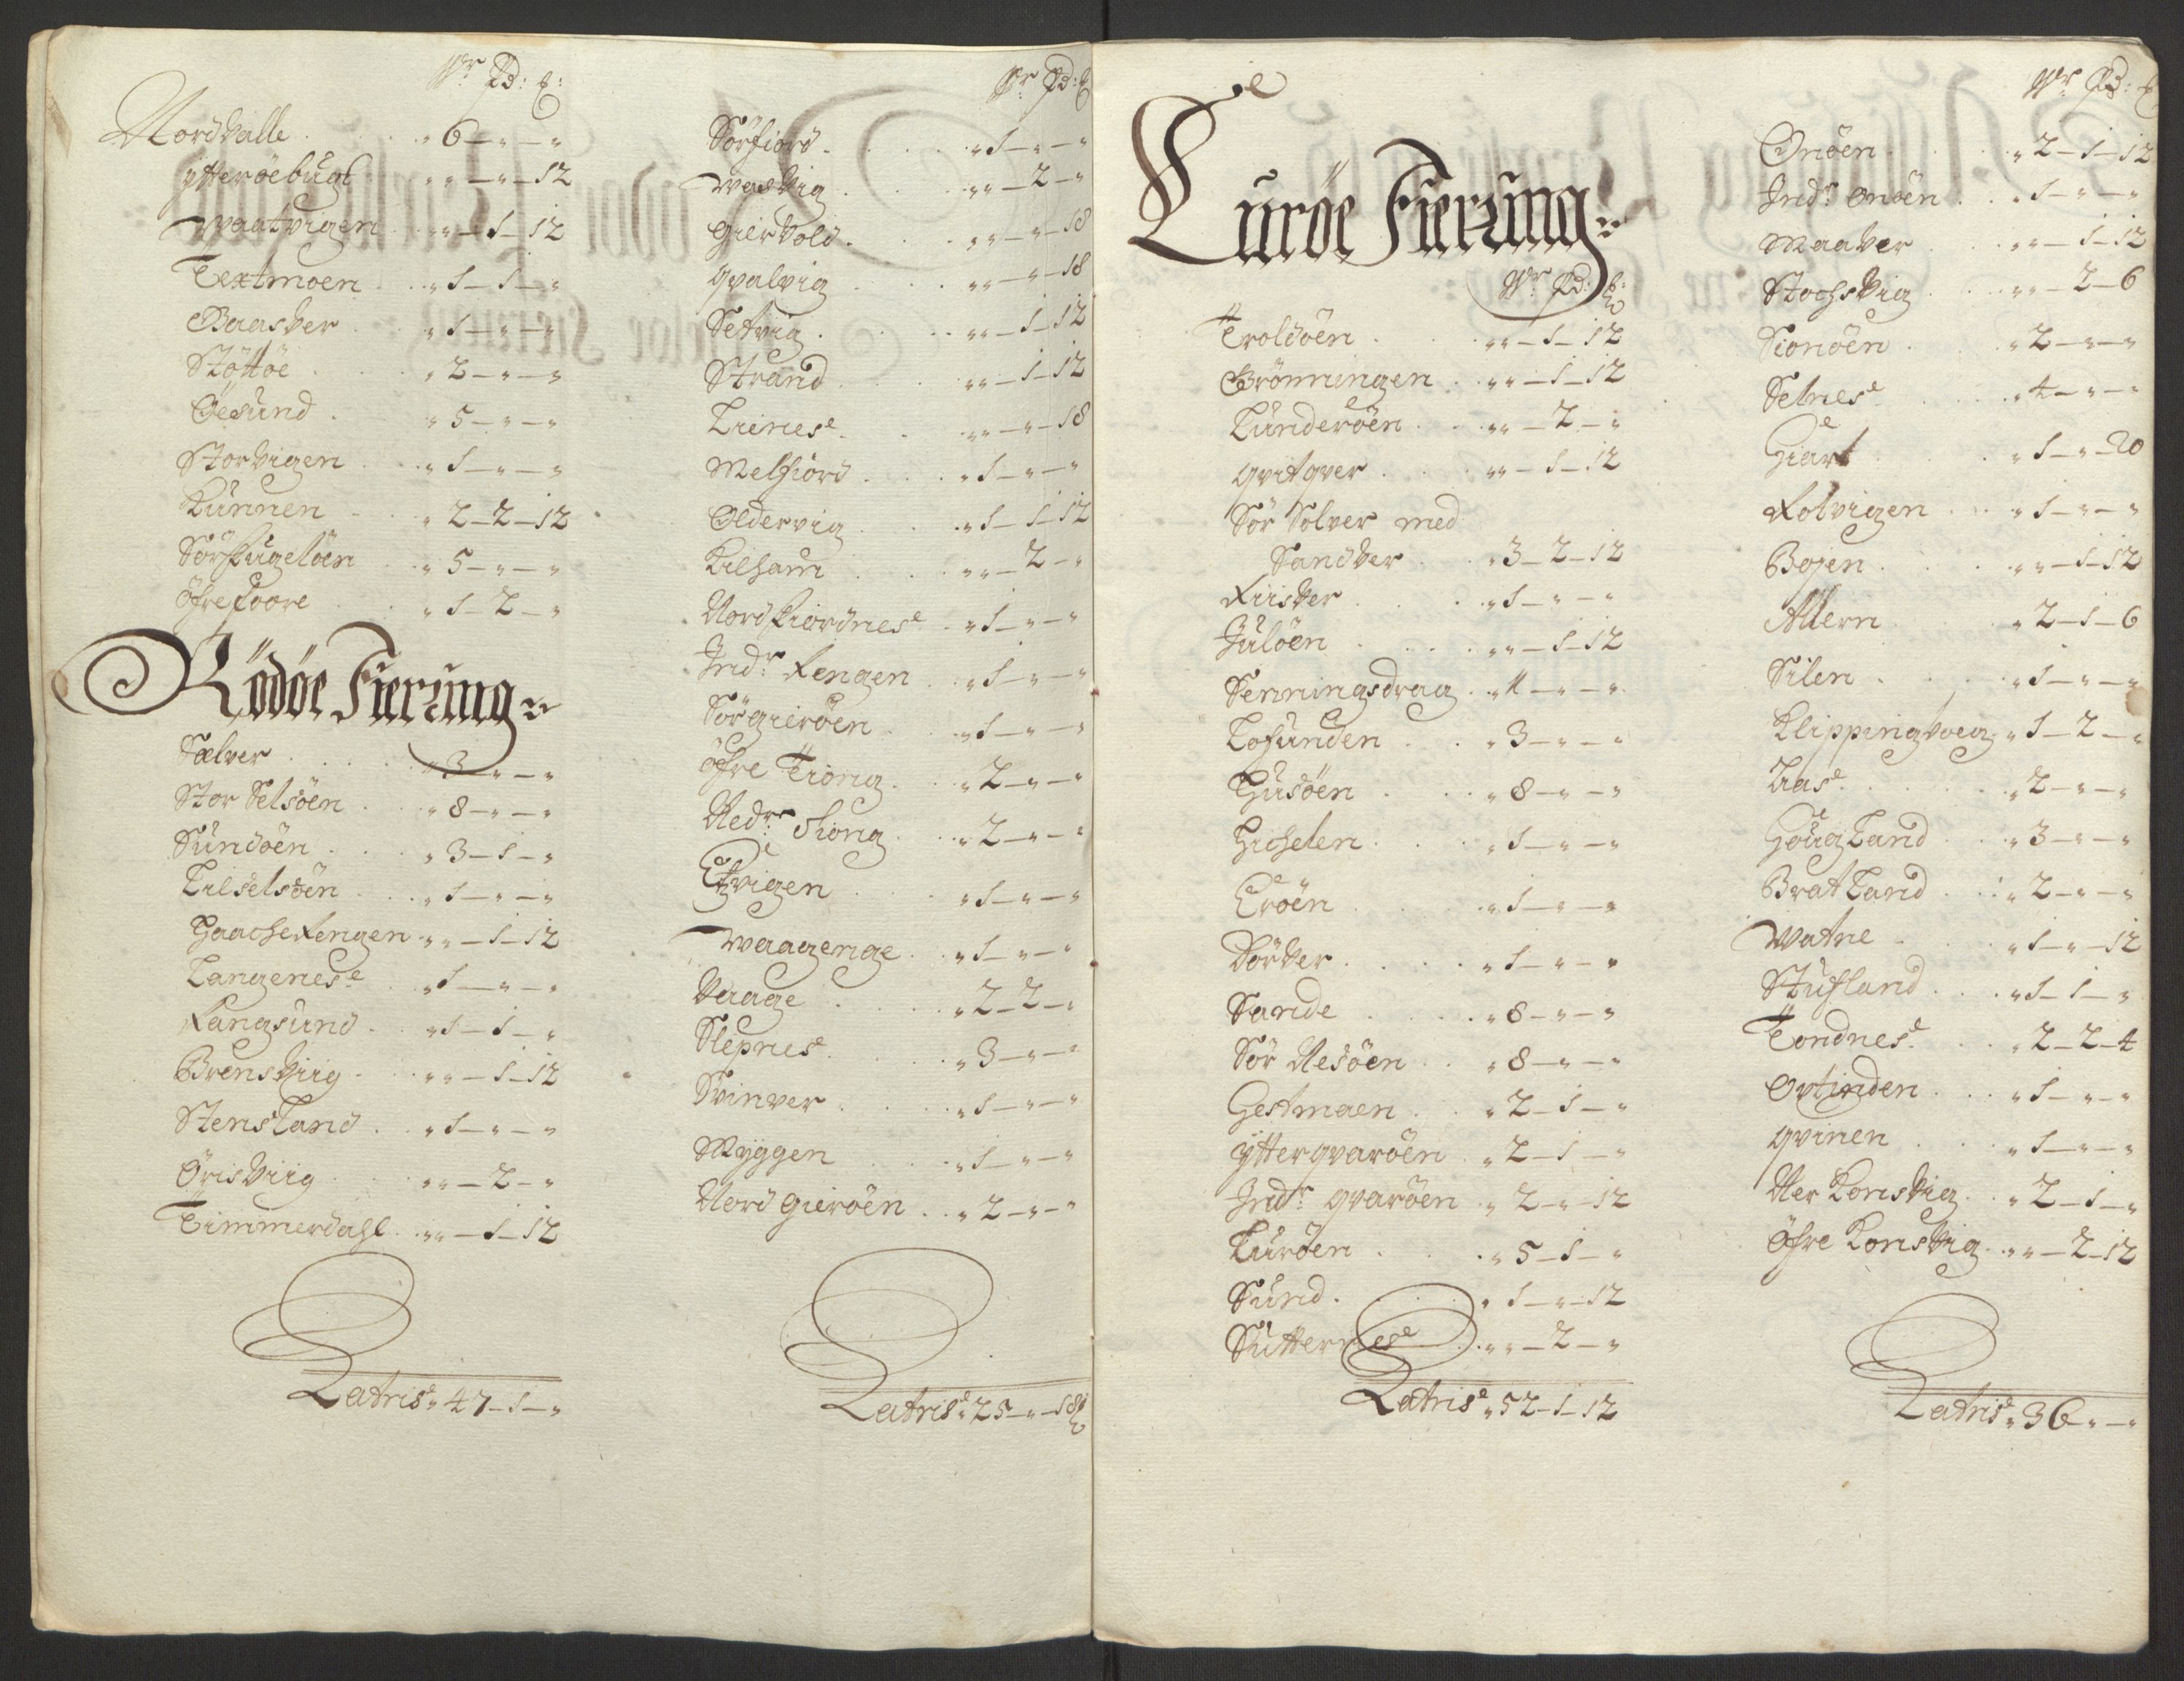 Wr Pd: ℔:
Nordvalle . . . „ 6 – „ – „
ytterøebugt „ „ – „ – 12
Waatvigen „ „ – 1 – 12
Textmoen . . „ 1 – 1 – „
Baasver . . „ 1 – „ – „
Støttøe . . „ 2 – „ – „
Øesund . . „ 5 – „ – „
Storvigen . . „ 1 – „ – „
Kunnen . . „ 2 – 2 – 12
Sørfugeløen . „ 5 – „ – „
Øfrefoore . . „ 1 – 2 – „
Rödöe Fierung
Sælver . . . „ 3 – „ – „
Stor Selsöen . „ 8 – „ – „
Sundöen . . „ 3 – 1 – „
Lilselsöen . . „ 1 – „ – „
HaacheRengen „ „ – 1 – 12
Langenese . „ 1 – „ – „
Rangsund . . „ 1 – 1 – „
Brensviig . „ „ – 1 – 12
Stensland . . „ 1 – „ – „
Örisviig . . „ „ – 2 – „
Timmerdahl . „ „ – 1 – 12
Latris: „ 47 – 1 – „
Wr Pd: ℔
Sörfiord . . . „ 1 – „ – „
Wasvig . . . „ „ – 2 – „
Giervold . . . „ „ – „ – 18
qvalvig . . . „ „ – „ – 18
Setvig . . . „ „ – 1 – 12
Strand . . . „ „ – 1 – 12
Lienese . . „ „ – „ – 18
Melfiord . . . „ 1 – „ – „
Oldervig . . „ 1 – 1 – 12
Kilham . . „ „ – 2 – „
Nordfiordnese . „ 1 – „ – „
Indr Rengen . „ 1 – „ – „
Sörgieröen . . „ 1 – „ – „
öfre Tiong . . „ 2 – „ – „
Nedre Tiong . „ 2 – „ – „
Etvigen . . „ 1 – „ – „
Waagenge . . „ 1 – „ – „
Vaage . . . „ 2 – 2 – „
Slepnese . . „ 3 – „ – „
Svinver . . . „ 1 – „ – „
Myggen . . . „ 1 – „ – „
Nord gieröen . . „ 2 – „ – „
Latris: „ 25 – „ – 18 ℔
Luröe Fierung
Wr Pd: ℔:
Troldöen . . „ „ – 1 – 12
Brönningen . „ „ – 1 – 12
Lunderöen . . „ „ – 2 – „
qvitqver . . „ „ – 1 – 12
Sör Solver med
Sandver . . „ 3 – 2 – 12
Riisver . . . „ 1 – „ – „
Julöen . . . „ „ – 1 – 12
Senningsdrag . „ 4 – „ – „
Lofunden . . „ 3 – „ – „
Husöen . . „ 8 – „ – „
Hichelen . . „ 1 – „ – „
Eröen . . . „ 1 – „ – „
Dörver . . . „ 1 – „ – „
Sande . . . „ 8 – „ – „
Sör Nesöen . . „ 8 – „ – „
Gestmaen . . „ 2 – 1 – „
yttergvaröen . „ 2 – 1 – „
Indr gvaröen „ 2 – „ – 12
Luröen . . . „ 5 – 1 – „
Sund . . . „ 1 – „ – 12
Sutternese . . „ „ – 2 – „
Latris: „ 52 – 1 – 12
Wr Pd: ℔
Onöen . . . „ 2 – 1 – 12
Indr onöen . . „ 1 – „ – „
Maaver . . „ „ – 1 – 12
Stochsvig . . „ „ – 2 – 6
Sionöen . . „ 2 – „ – „
Selnese . . . „ 4 – „ – „
Hiart . . . „ 1 – „ – 20
Rolvigen . . „ 1 – „ – „
Bojen . . . „ „ – 1 – 12
Allern . . . „ 2 – 1 – 6
Silen . . . „ 1 – „ – „
Klippingvoeg . „ 1 – 2 – „
Aase . . . „ 2 – „ – „
Hougland . . „ 3 – „ – „
Bratland . . „ 2 – „ – „
Watne . . . „ 1 – „ – 12
Stufland . . „ 1 – 1 – „
Tondnese . . „ 2 – 2 – 4
Ovtinden . . „ 1 – „ – „
qvinen . . . „ 1 – „ – „
Ner Konsvig . . „ 2 – 1 – „
Öfre Konsvig . „ „ – 2 – 12
Latris: „ 36 – „ – „